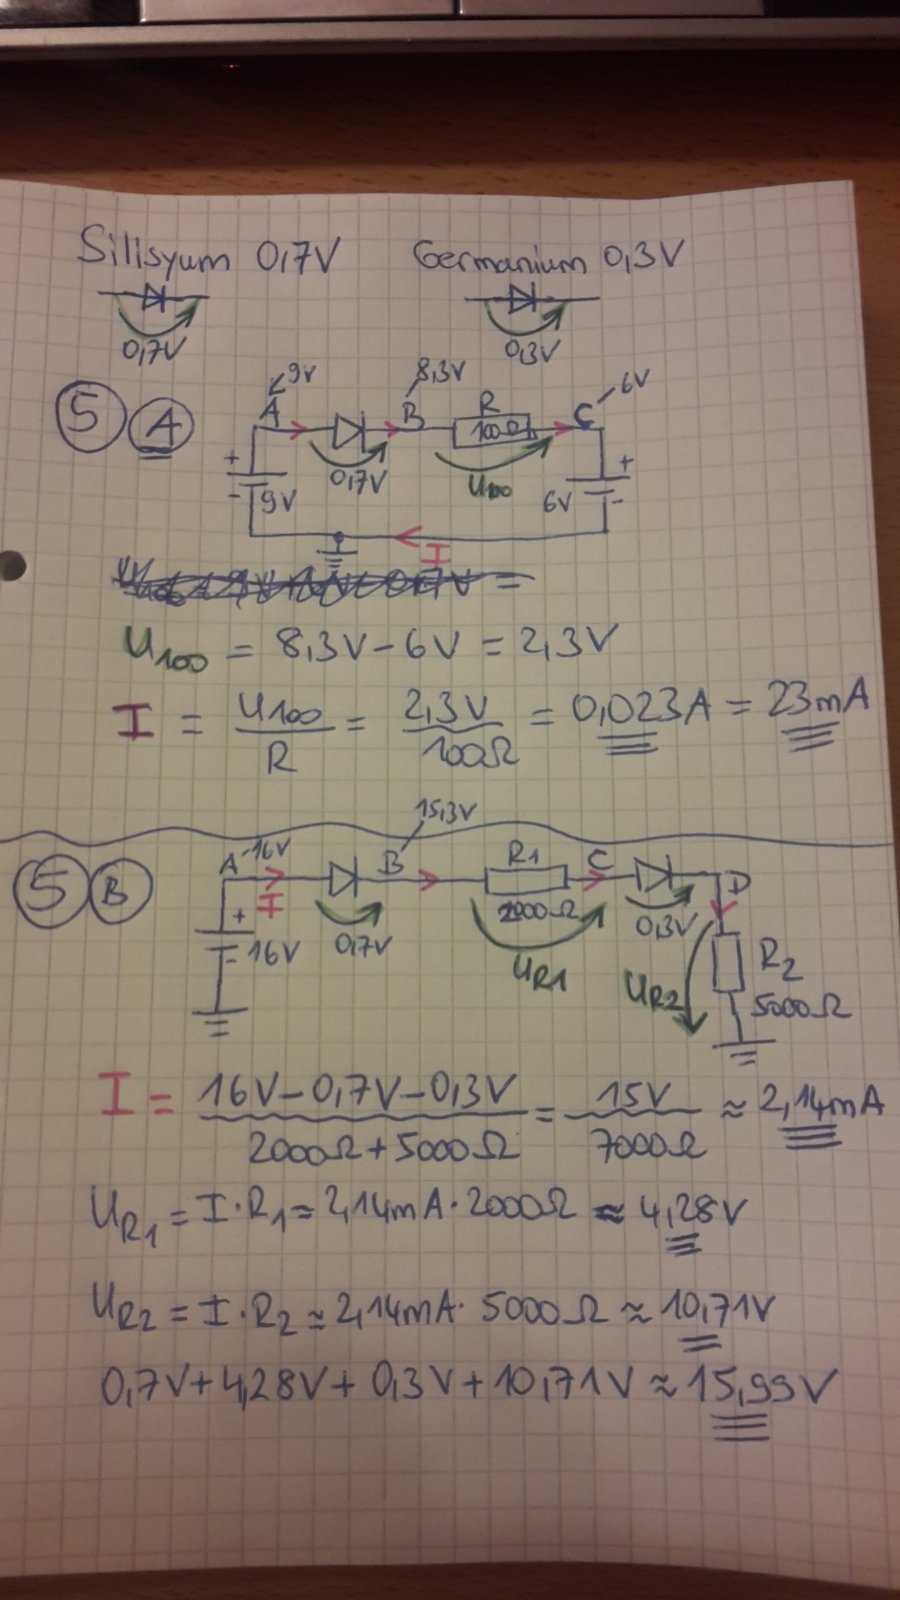 Silisyum 0,7V Germanium 0,3V
0,7V 0,3V
5 A
9V 8,3V 6V
A B R C
100Ω
+ 0,7V U100 +
- 9V 6V -
I
U100 = 8,3V - 6V = 2,3V
I = U100 / R = 2,3V / 100Ω = 0,023A = 23mA
15,3V
5 B
A 16V B R1 C D
I 2000Ω
+ 0,7V 0,3V
- 16V UR1 UR2 R2
5000Ω
I = 16V - 0,7V - 0,3V / 2000Ω + 5000Ω = 15V / 7000Ω ≈ 2,14mA
UR1 = I · R1 ≈ 2,14mA · 2000Ω ≈ 4,28V
UR2 = I · R2 ≈ 2,14mA · 5000Ω ≈ 10,71V
0,7V + 4,28V + 0,3V + 10,71V ≈ 15,99V